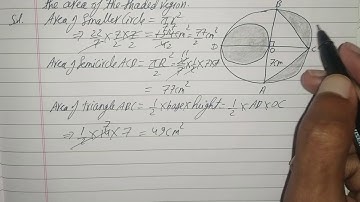 the area of the shaded region.
Sol. Area of Smaller Circle = πR²
⇒ 22/7 × 7/2 × 7/2 = 154/4 cm² = 77/2 cm²
Area of Semicircle ACD = πR²/2 = 22/7 × 1/2 × 7 × 7
= 77cm²
Area of triangle ABC = 1/2 × base × height = 1/2 × AD × OC
⇒ 1/2 × 14 × 7 = 49cm²
B
D
O
C
7cm
A